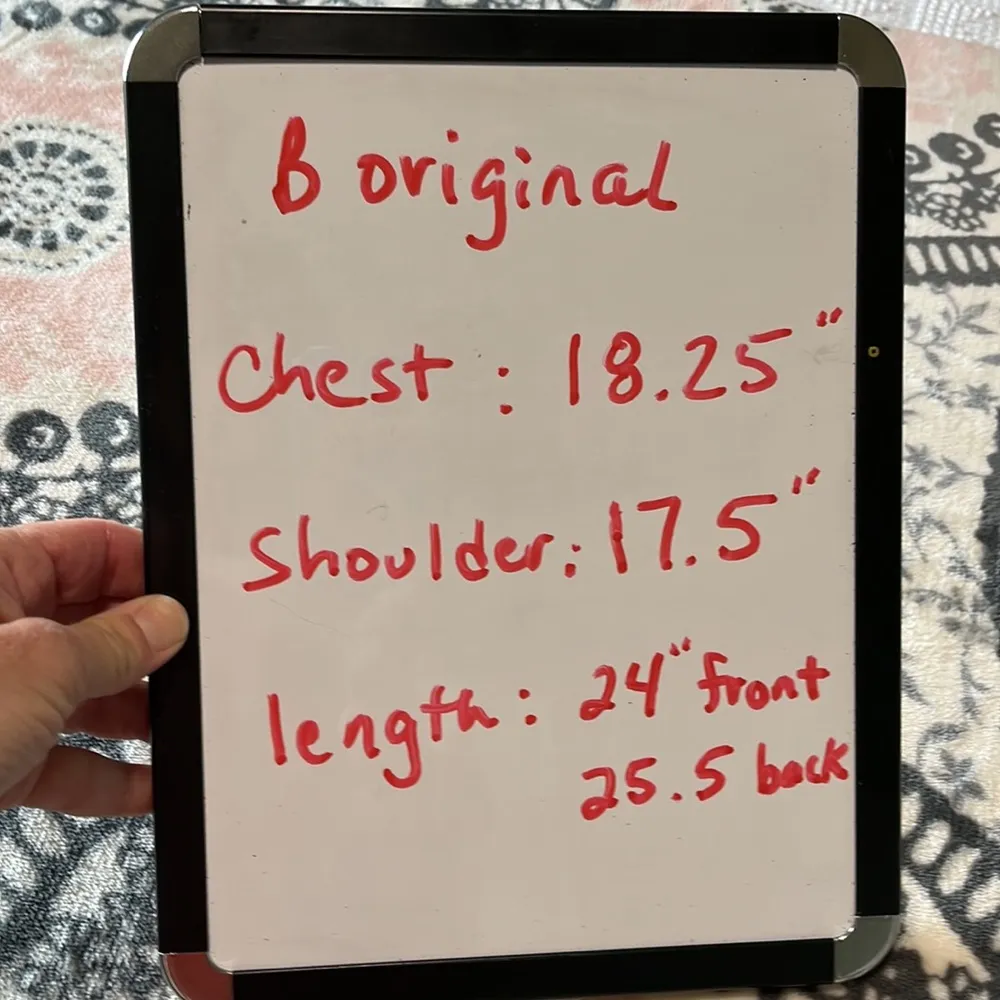 B original
Chest : 18.25"
Shoulder: 17.5"
length : 24" front
25.5 back